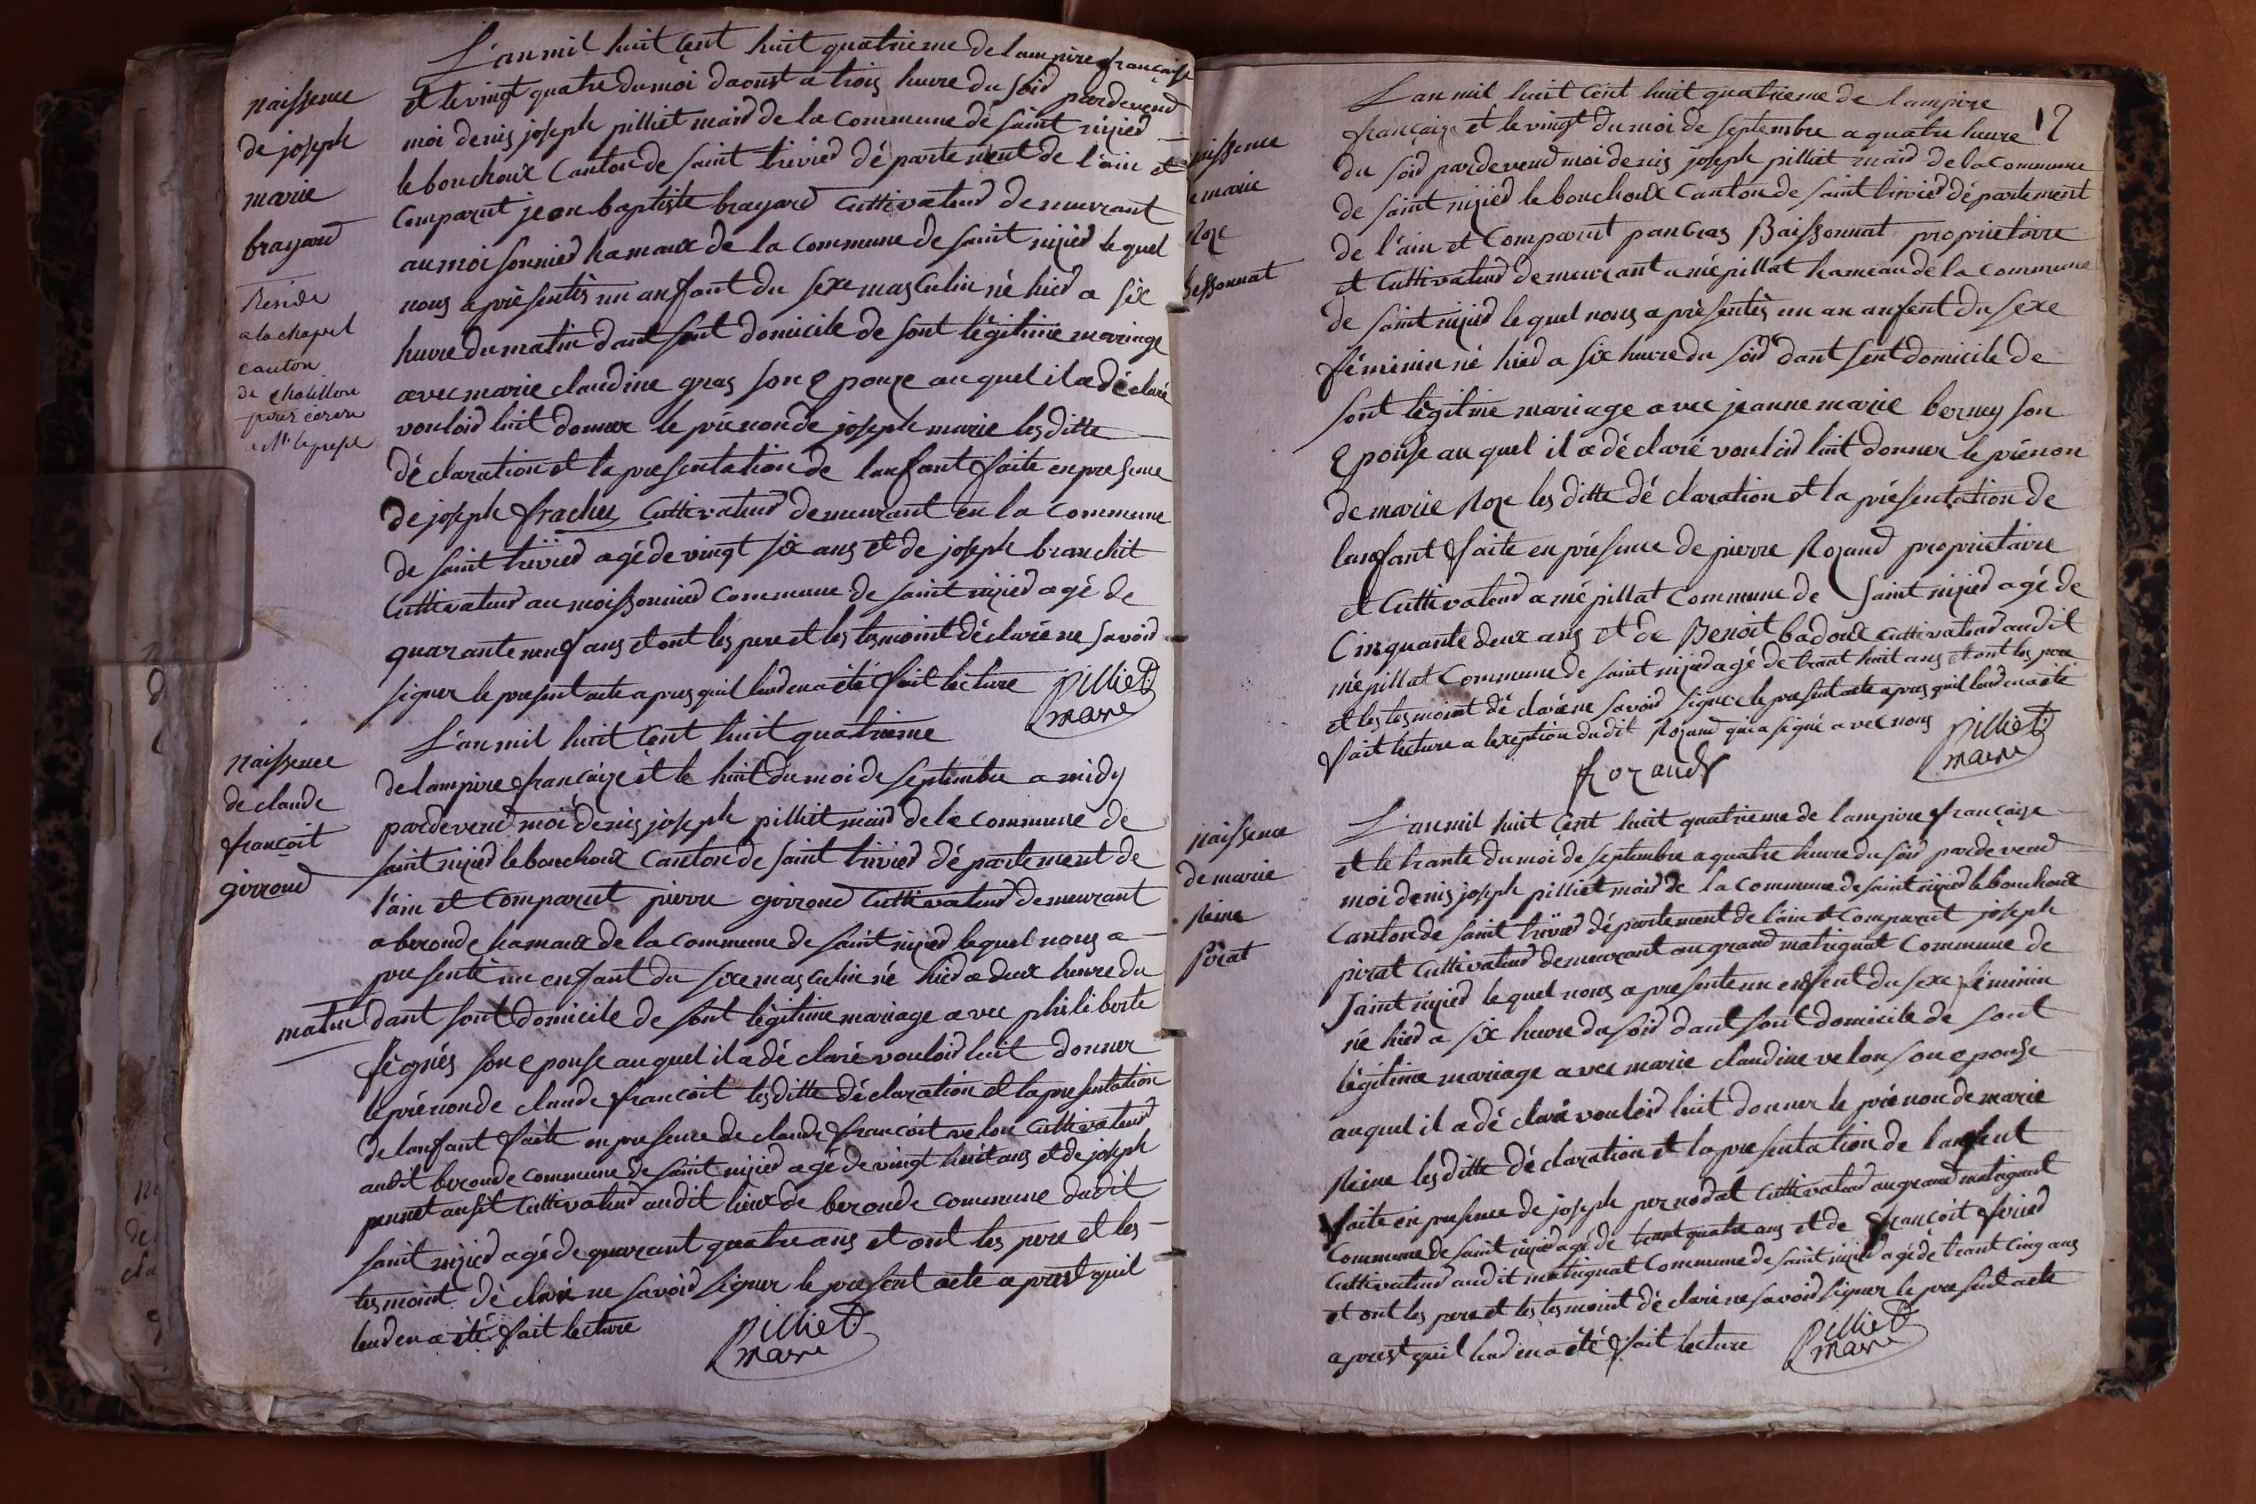 naissence
de joseph
marie
brayard
Reside
a la chapel
canton
de Chatillon
L'an mil huit cent huit quatrieme de lampire francaise
et le vingt quatre du moi daoust a trois heure du soid pardevend
moi denis joseph pilliet maid de la commune de saint nizied
le bouchoux canton de saint trivied département de l'ain et
Comparut jean baptiste brayard cultivateud demeurant
au moisonnied hamaux de la commune de saint nizied le quel
nous a présentés un anfant du sexe masculin né hied a six
heure du matin dant sont domicile de sont légitime mariage
avec marie claudine gras son epouze au quel il a déclaré
vouloid luit donner le prénon de joseph marie les ditte
déclaration et la presentation de lanfant faite en presence
de joseph frachet Cultivateud demeurant en la commune
de saint trivied agé de vingt six ans et de joseph branchit
Cultivateud au moissonnied commune de saint nizied agé de
quarante neuf ans et ont les pere et les tesmoint déclaré ne savoid
signer le present acte apres quil leud en a été fait lecture
pilliet
maire
naissence
de claude
francoit
girroud
L'an mil huit cent huit quatrieme
de lampire francaize et le huit du moi de septembre a midy
pardevend moi denis joseph pilliet maid de la commune de
saint nizied le bouchoux canton de saint trivied département de
l'ain et Comparut pierre girroud Cultivateud demeurant
a beronde hamaux de la commune de saint nizied lequel nous a
presenté un enfant du sixe masculin né hied a deux heure du
matin dant sont domicile de sont légitime mariage avec philiberte
son epouse au quel il a déclaré vouloid luit donner
le prénon de claude francoit les ditte déclaration et la presentation
de lanfant faite en presence de claude francoit velon cultivateud
audit beronde commune de saint nizied agé de vingt huit ans et de joseph
pennet ausit Cultivateud audit lieux de beronde commune dudit
saint nizied agé de quarant quatre ans et ont les pere et les
tesmoint déclaré ne savoid signer le present acte aprest quil
leud en a été fait lecture
pilliet
maire
12
naissence
de marie
Roze
bessonnat
L'an mil huit cent huit quatrieme de lampire
francaize et le vingt du moi de septembre a quatre heure
du soid pardevend moi denis joseph pilliet maid de la commune
de saint nizied le bouchoux canton de saint trivied département
de l'ain et Comparut pancras Baissonnat proprietaire
et Cultivateud demeurant a mépillat hameau de la commune
de saint nizied le quel nous a présentés un an anfent du sexe
féminin né hied a six heure du soid dant sent domicile de
sont légitime mariage avec jeanne marie berney son
epouse au quel il a déclaré vouloid luit donner le prénon
de marie Roze les ditte déclaration et la présentation de
lanfant faite en présence de pierre Rozand proprietaire
et Cultivateud a mépillat commune de saint nizied agé de
Cinquante deux ans et de Benoit badoux cultivateud audit
mépillat commune de saint nizied agé de trant huit ans et ont les pere
et les tesmoint déclaré ne savoid signer le present acte apres quil leud en a été
fait lecture a lexeption dudit Rozand qui a signé avec nous
pilliet
maire
Rozand
naissence
de marie
Reine
Pirat
L'an mil huit cent huit quatrieme de lampire francaize
et le trante du moi de septembre a quatre heure du soid pardevend
moi denis joseph pilliet maid de la commune de saint nizied le bouchoux
canton de saint trivied département de l'ain et Comparut joseph
pirat Cultivateud demeurant au grand matignat commune de
saint nizied le quel nous a presente un enfent du sexe féminin
né hied a six heure du soid dant sont domicile de sont
légitime mariage avec marie claudine velon son epouse
au quel il a déclaré vouloid luit donner le prénon de marie
Reine les ditte déclaration et la presentation de lanfent
faite en presence de joseph pernodat Cultivateud au grand matignat
Commune de saint nizied agé de trant quatre ans et de francoit feried
Cultivateud audit matignat commune de saint nizied agé de trant cinq ans
et ont les pere et les tesmoint déclaré ne savoid signer le present acte
aprest quil leud en a été fait lecture
pilliet
maire